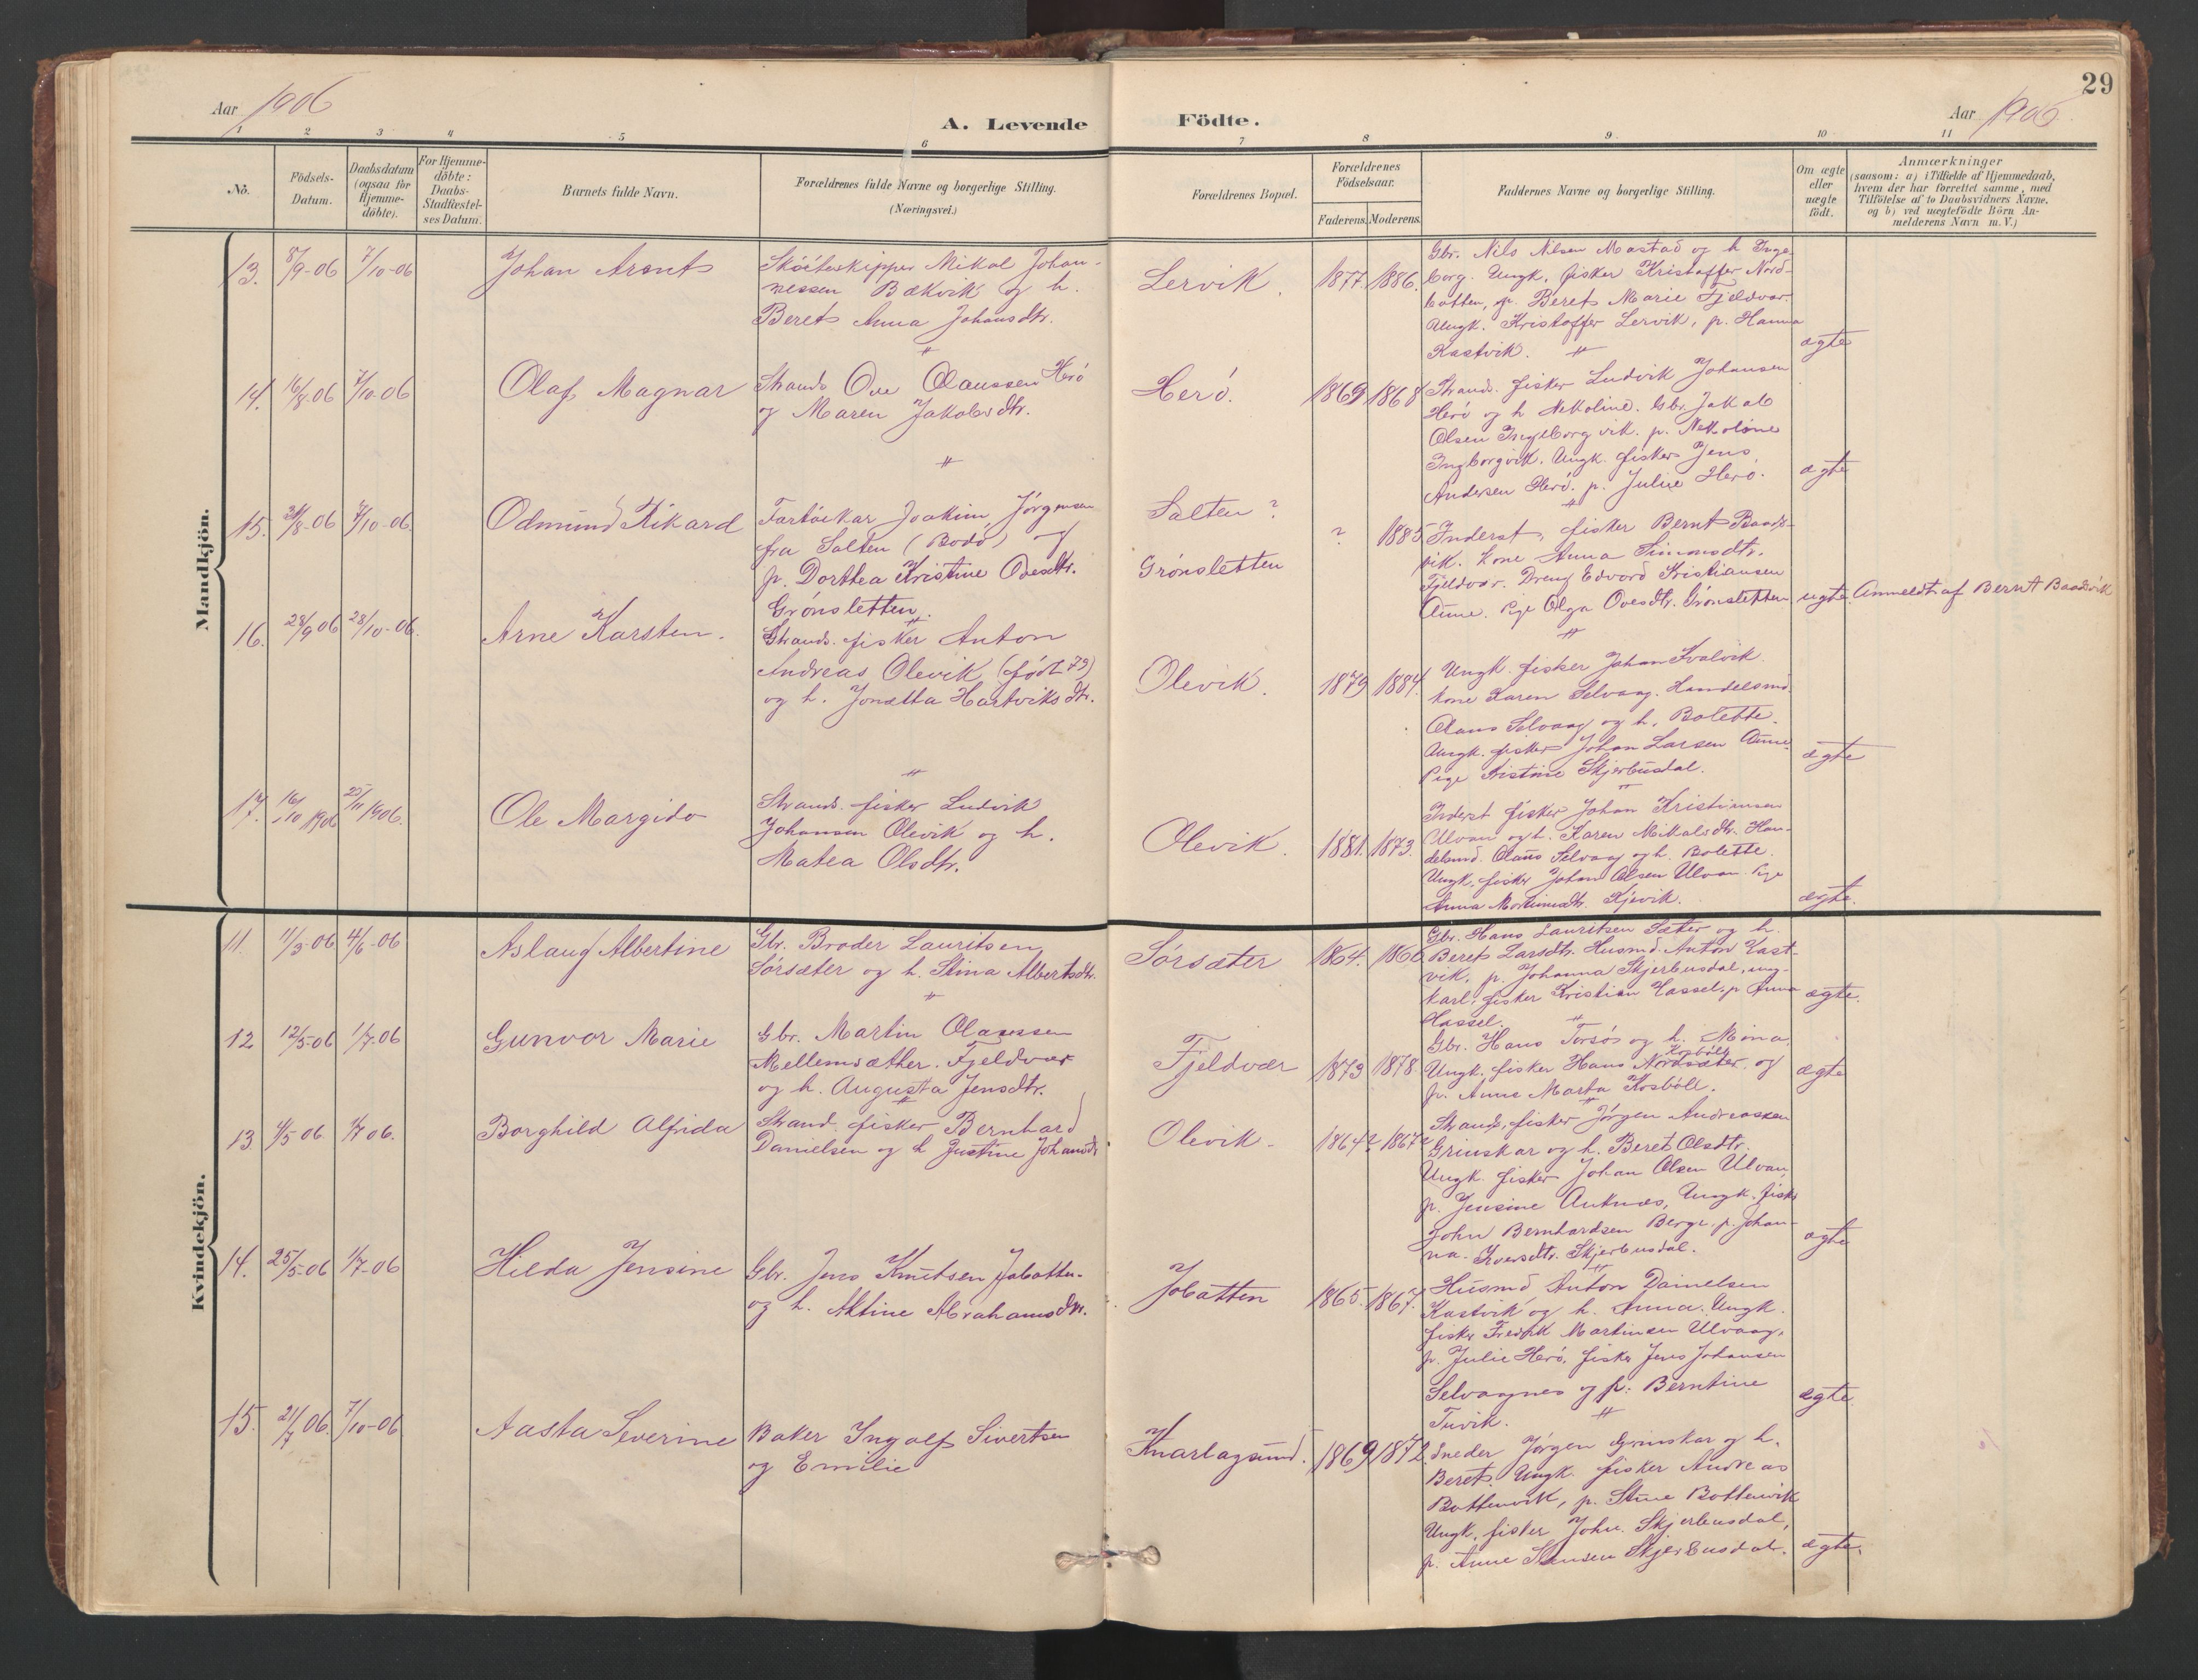 29
Aar 1906
A. Levende Födte.
Aar 1906
1 2 3 4 5 6 7 8 9 10 11
No.
Födsels-
Datum.
Daabsdatum
(ogsaa for
Hjemme-
döbte).
For Hjemme-
döbte:
Daabs-
Stadfæstel-
ses Datum.
Barnets fulde Navn.
Forældrenes fulde Navne og borgerlige Stilling.
(Næringsvei.)
Forældrenes Bopæl.
Forældrenes
Födselsaar.
Faderens.
Moderens.
Faddernes Navne og borgerlige Stilling.
Om ægte
eller
uægte
födt.
Anmærkninger
(saasom: a) i Tilfælde af Hjemmedaab,
hvem der har forrettet samme, med
Tilföielse af to Daabsvidners Navne.
og b) ved uægtefödte Börn An-
melderens Navn m. V.)
Mandkjön.
13. 8/9-06 7/10-06
Johan Arnt
Mikal Johan-
nessen Bækvik og h.
Beret Anna Johansdtr.
Lervik.
1877. 1886.
Gbr. Nils Nilsen Mastad og h Inge-
borg. Ungk. fisker Kristoffer Nord-
botten, p. Beret Marie Fjeldvær.
Ungk. Kristoffer Lervik, p. Hanna
Kastvik.
ægte
14. 16/8.06 7/10.06
Olaf Magnar
Strands. Ove Olaussen Herö
og Maren Jakobsdtr.
Herö.
1869 1868
Strands. fisker Ludvik Johansen
Herö og h Nekoline. Gbr. Jakob
Olsen Ingeborgvik. p. Nekoline
Ingborgvik. Ungk. fisker Jens
Andersen Herö. p. Julie Herö.
ægte
15. /8-06 7/10-06.
Odmund Rikard
Joakim Jörgensen
fra Salten (Bodö) og
p. Dorthea Kristine Ovesdtr.
Grönsletten.
Salten?
Grönsletten
? 1885
Inderst, fisker Bernt Baads-
vik. kone Anna Simonsdtr.
Fjeldvær. Dreng Edvard Kristiansen
Aune. Pige Olga Ovesdtr. Grönsletten
uægte.
Anmeldt af Bernt Baadsvik
16. 28/9 06 28/10-06.
Arne Karsten.
Strands. fisker Anton
Andreas Olevik (födt 79)
og h. Jonetta Hartviksdtr.
Olevik.
1879 1884.
Ungk. fisker Johan Kvalvik
kone Karen Selvaag. Handelsmd.
Olaus Selvaag og h. Bolette.
Ungk. fisker Johan Larsen Aune.
Pige Kristine Skjerbusdal.
ægte
17. 16/10 1906 25/11 1906.
Ole Margido
Strands. fisker Ludvik
Johansen Olevik og h.
Matea Olsdtr.
Olevik.
1881. 1873.
Inderst fisker Johan Kristiansen
Ulvan og h. Karen Mikalsdtr. Han-
delsmd. Olaus Selvaag og h. Bolette.
Ungk. fisker Johan Olsen Ulvan. Pige
Anna Kjevik.
ægte.
Kvindekjön.
11. 11/3-06 4/6-06
Aslaug Albertine
Gbr. Broder Lauritsen
Sörsæter og h. Stina Albertsdtr.
Sörsæter
1864. 1866
Gbr. Hans Lauritsen Sæter og h.
Beret Larsdtr. Husmd. Anton Kast-
vik, p. Johanna Skjerbusdal, ung-
karl, fisker Kristian Hassel, p Anna
Hassel.
ægte.
12 12/5-06 1/7.06
Gunvor Marie
Gbr. Martin Olaussen
Mellemsæther. Fjeldvær
og h. Augusta Jensdtr.
Fjeldvær
1873 1878
Gbr. Hans Torsös og h. Mina.
Ungk. fisker Hans Nordsæter Kosböll og
p. Anne Marta Kosböll.
ægte
13. 4/5 06. 1/7 06.
Borghild Alfrida
Strand. fisker Bernhard
Danielsen og h Justine Johansdtr
Olevik.
1864? 1867?
Strands. fisker Jörgen Andreassen
Grinskar og h. Beret Olsdtr.
Ungk. fisker Johan Olsen Ulvan
p. Jensine Auknes, Ungk. fisker
John Bernhardsen Berge. p. Johan-
na. Iversdtr. Skjerbusdal.
ægte
14. 25/5-06 1/7-06
Hilda Jensine
Gbr. Jens Knutsen Jobotten
og h. Aktine Abrahamsdtr.
Jobotten
1865. 1867.
Husmd Anton Danielsen
Kastvik og h. Anna. Ungk.
fisker Fredrik Martinsen Ulvaag,
p. Julie Herö, fisker Jens Johansen
Selvagnes og p. Berntine
Tuvik.
ægte
15. 21/7 06. 7/10-06
Aasta Severine
Baker Ingolf Sivertsen
og Emilie
Knarlagsund.
1869 1872.
Sneder Jörgen Grinskar og h.
Beret. Ungk. fisker Andreas
Bottenvik, p. Stine Bottenvik
Ungk. fisker John Skjerbusdal,
p. Anne Skjerbusdal.
ægte.